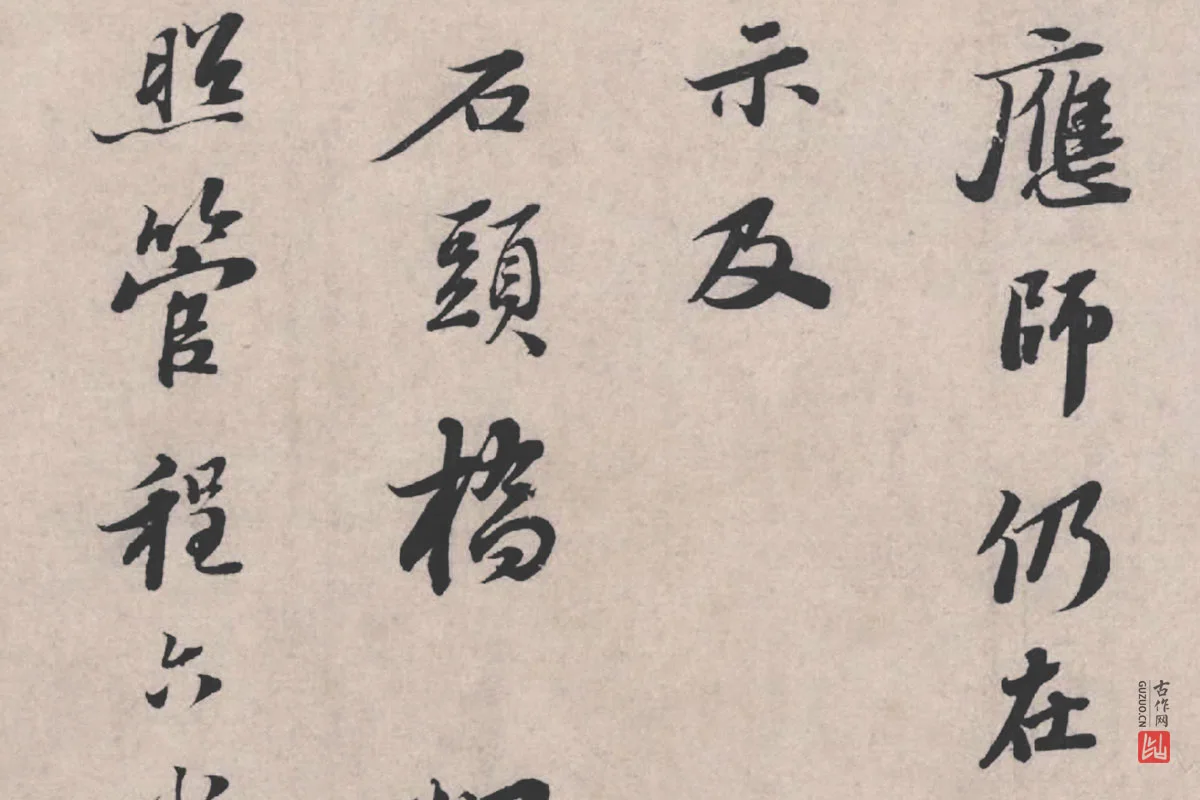 應師仍在
示及
石頭橋
照管程六
古作网
GUZUO.CN